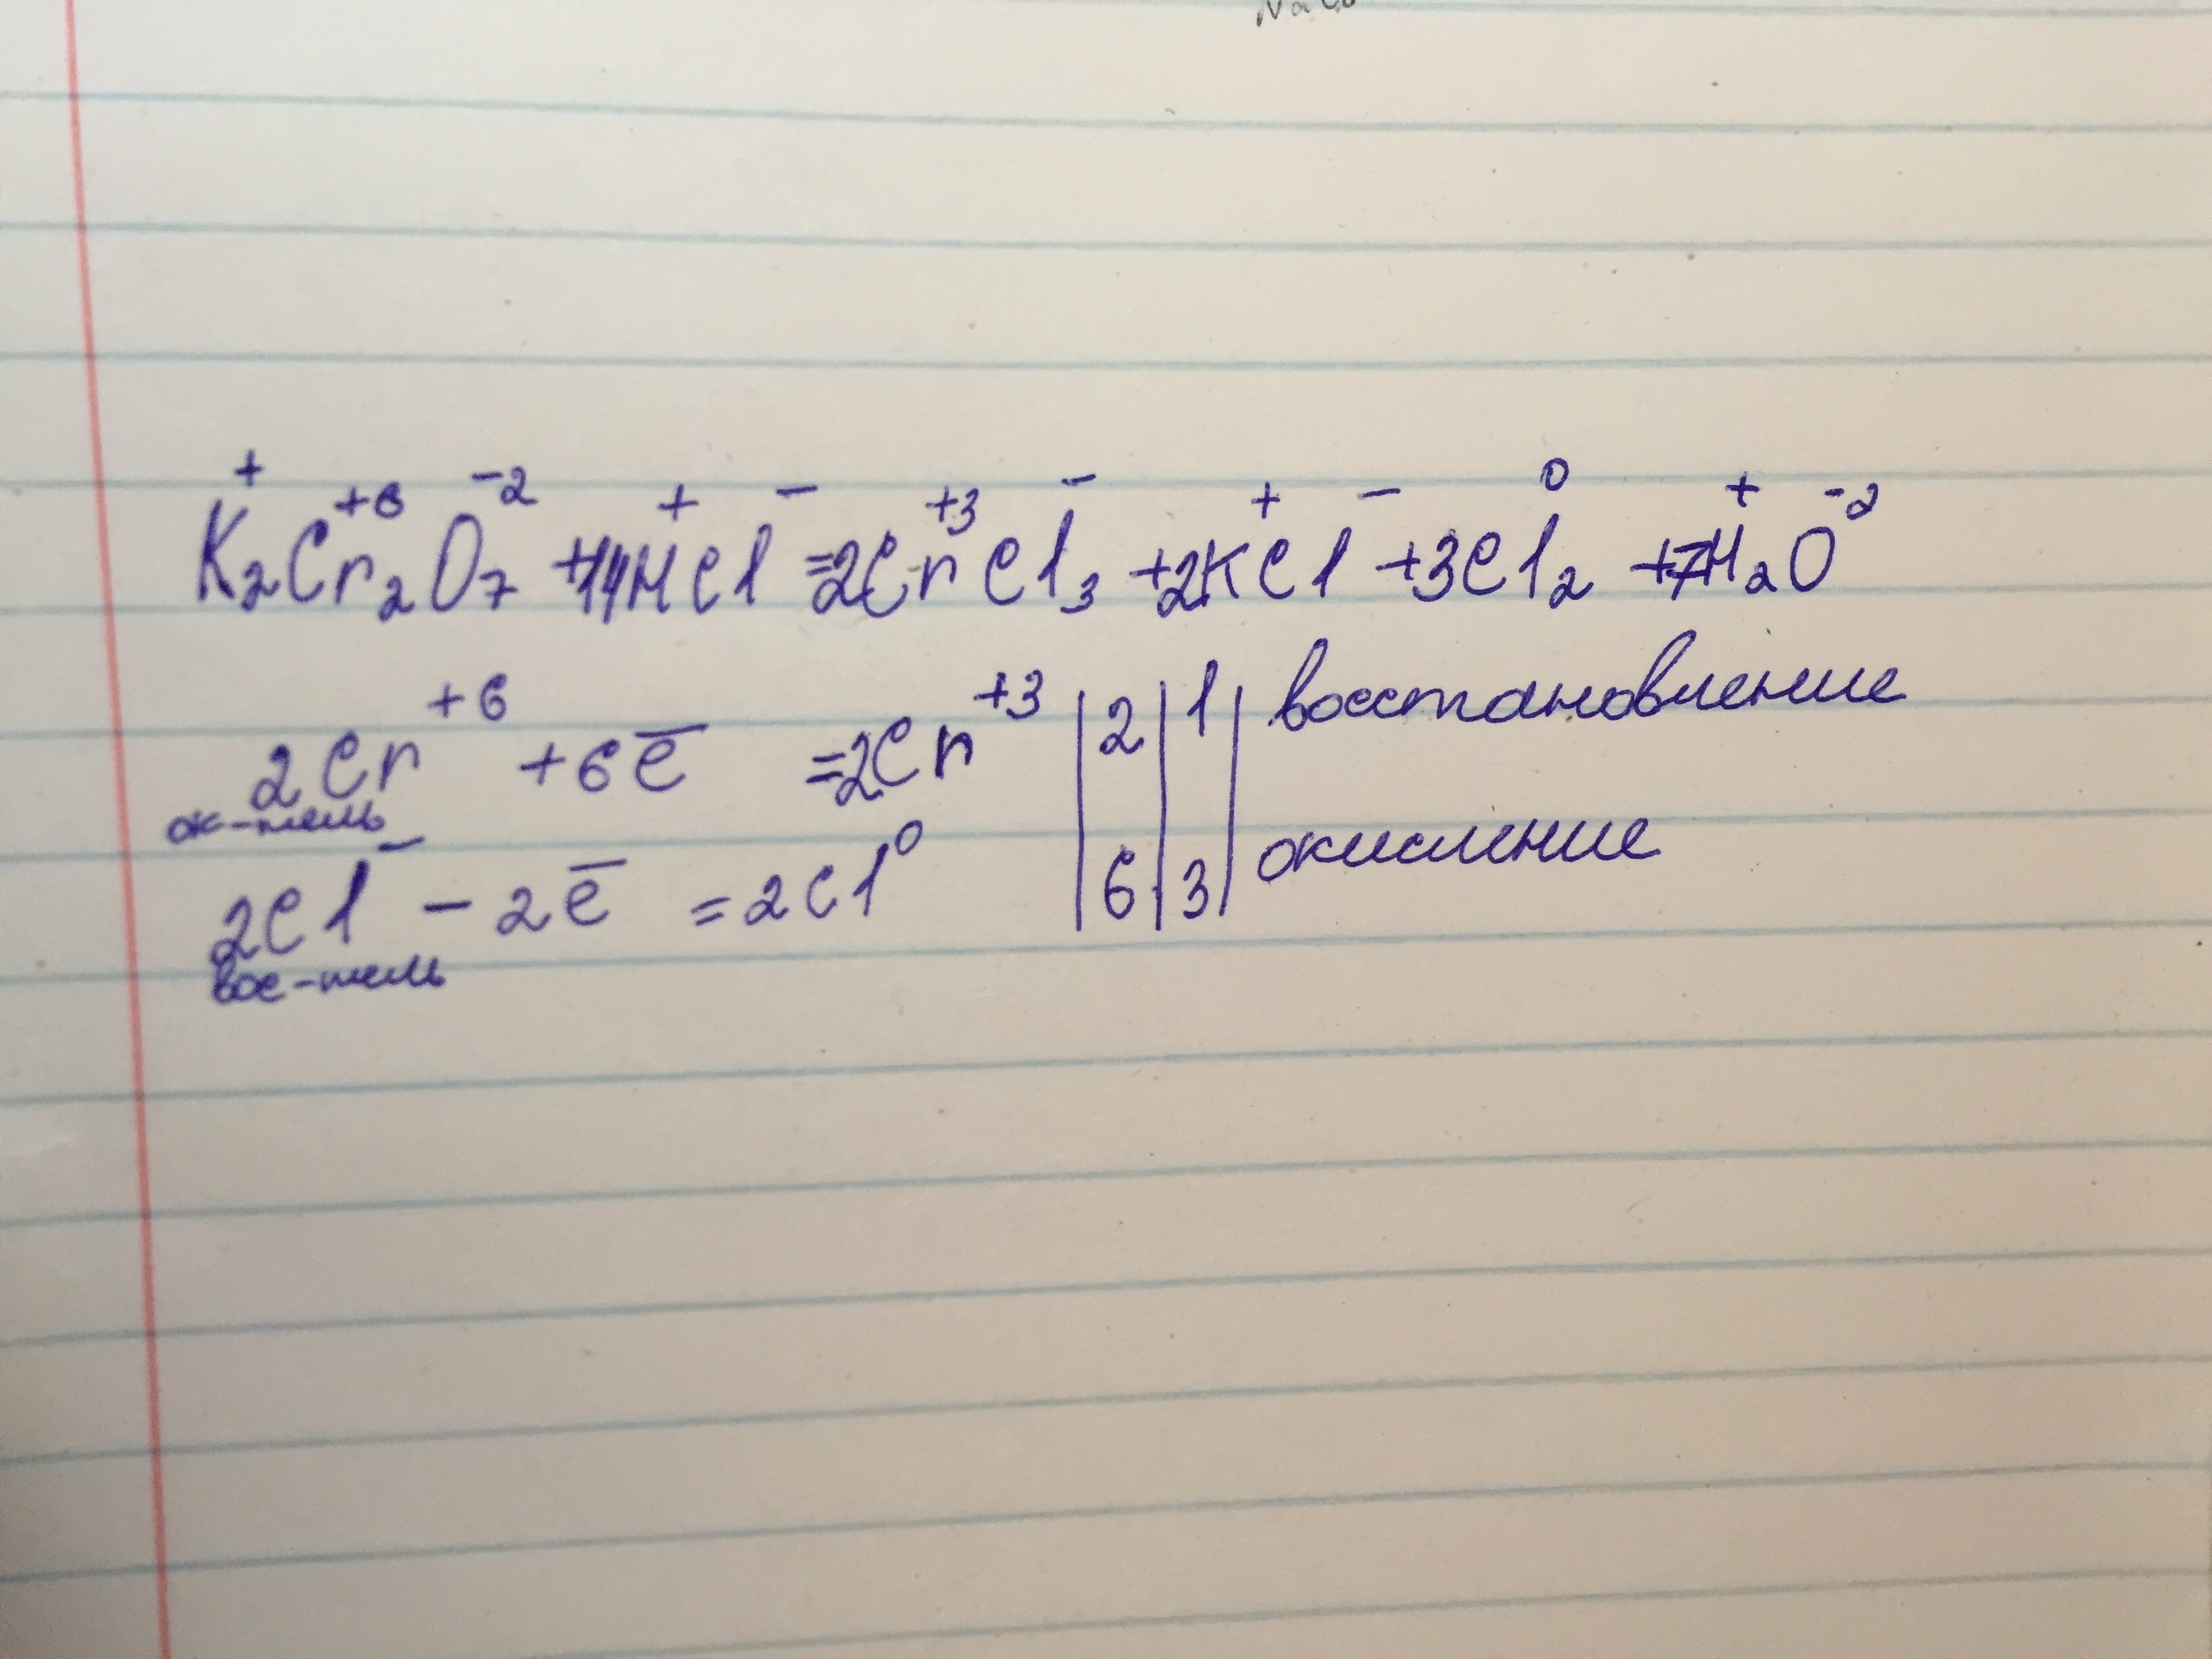 K₂⁺Cr₂⁺⁶O₇⁻² + 14H⁺Cl⁻ = 2Cr⁺³Cl₃⁻ + 2K⁺Cl⁻ + 3Cl₂⁰ + 7H₂⁺O⁻²
2Cr⁺⁶ + 6e̅ = 2Cr⁺³ | 2 | 1 | восстановление
ок-тель
2Cl⁻ - 2e̅ = 2Cl⁰ | 6 | 3 | окисление
вос-тель